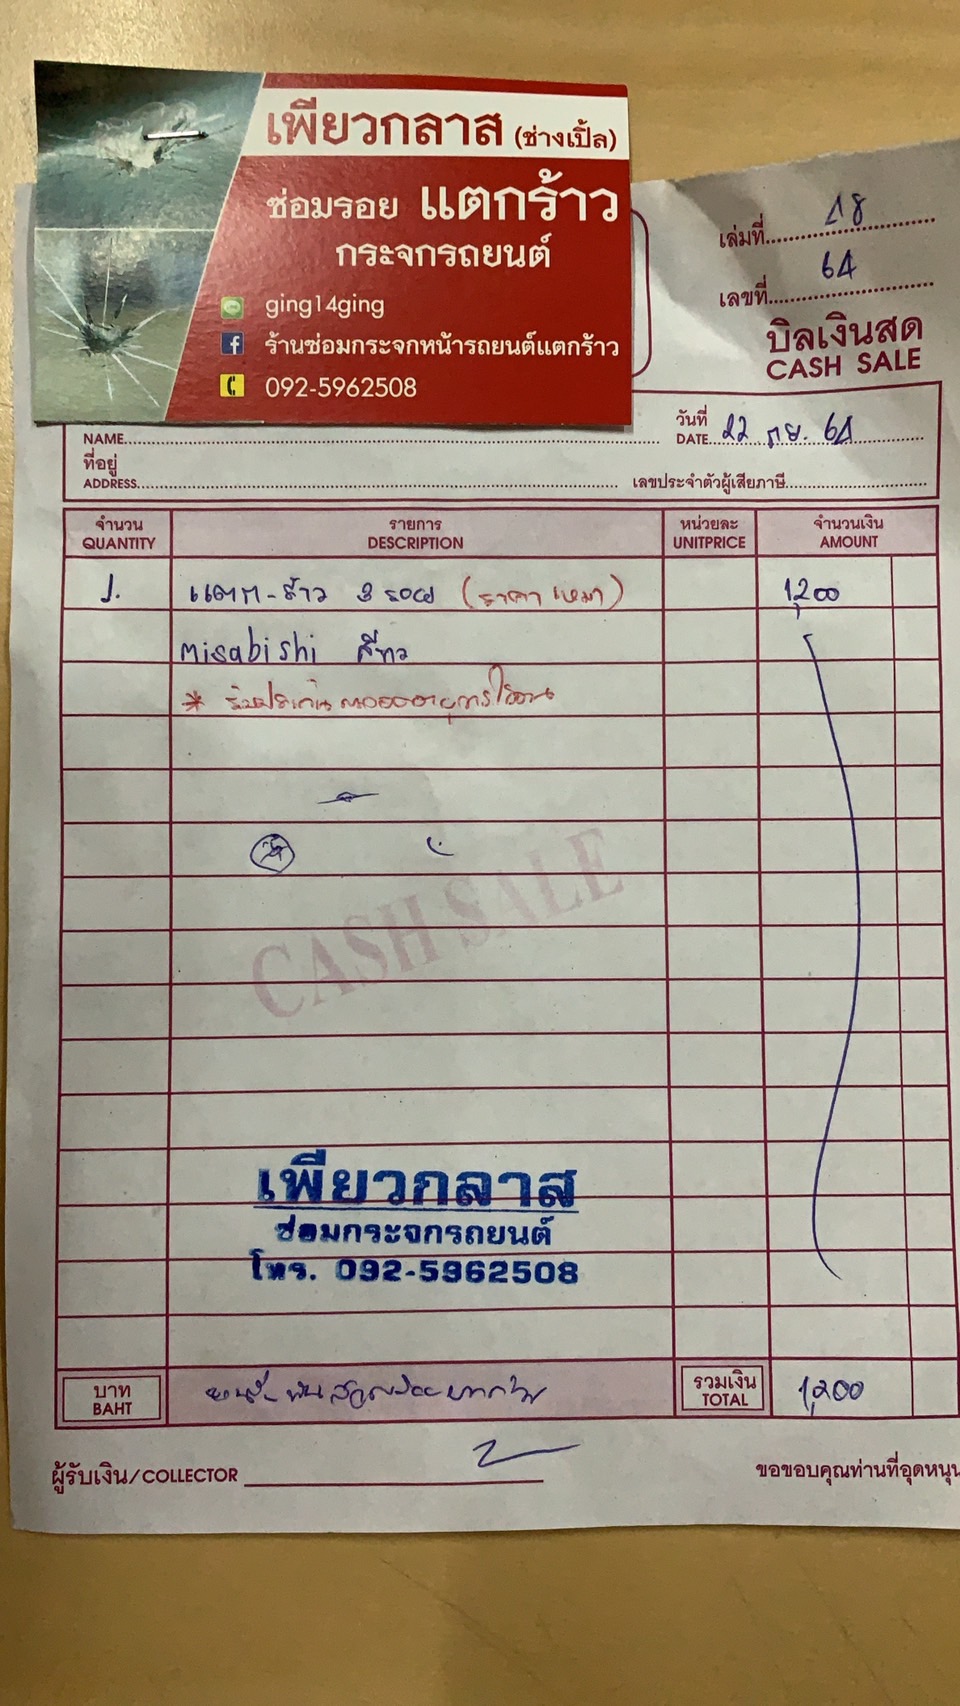 เพียวกลาส (ช่างเปิ้ล)
ซ่อมรอย แตกร้าว
กระจกรถยนต์
ging14ging
ร้านซ่อมกระจกหน้ารถยนต์แตกร้าว
092-5962508
เล่มที่ 18
เลขที่ 64
บิลเงินสด
CASH SALE
NAME
วันที่
DATE 22 กย. 64
ที่อยู่
ADDRESS
เลขประจำตัวผู้เสียภาษี
จำนวน รายการ หน่วยละ จำนวนเงิน
QUANTITY DESCRIPTION UNITPRICE AMOUNT
1. แตก-ร้าว 3 รอย (ราคาเหมา) 1,200
Misabishi สีขาว
* รับประกันตลอดอายุการใช้งาน
CASH SALE
เพียวกลาส
ซ่อมกระจกรถยนต์
โทร. 092-5962508
บาท
BAHT
หนึ่งพันสองร้อยบาท
รวมเงิน
TOTAL
1,200
ผู้รับเงิน/COLLECTOR
ขอขอบคุณท่านที่อุดหนุน